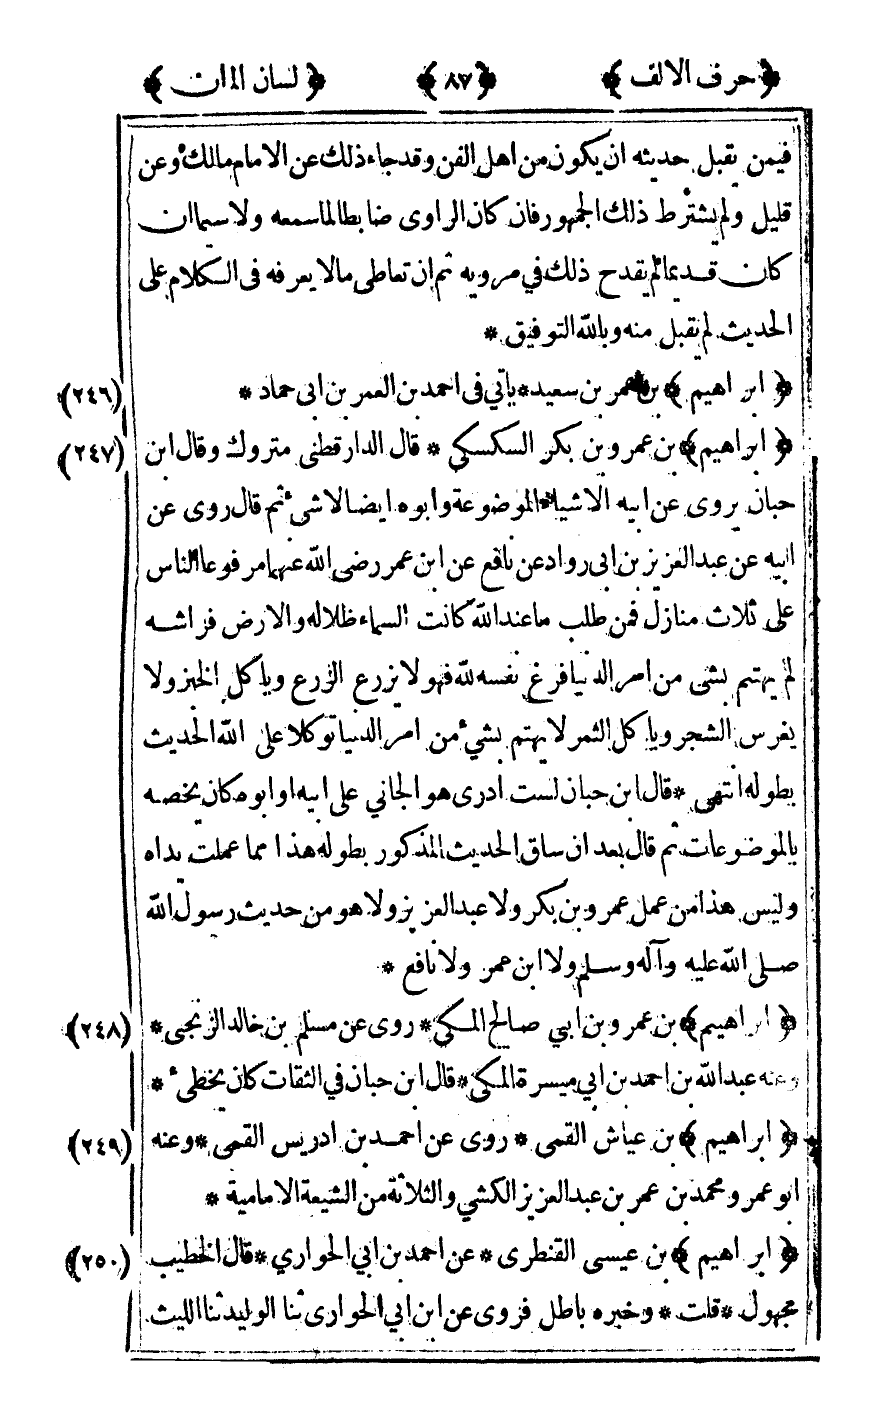 ﴿ حرف الالف ﴾ ﴿ ٨٧ ﴾ ﴿ لسان الميزان ﴾
فيمن يقبل حديثه ان يكون من اهل الفن وقد جاء ذلك عن الامام مالك وعن
قليل ولم يشترط ذلك الجمهور فان كان الراوى ضابطا لما سمعه ولا سيما ان
كان قديما لم يقدح ذلك في مرويه ثم ان تعاطى مالا يعرفه فى الكلام على
الحديث لم يقبل منه وبالله التوفيق *
﴿ ابراهيم ﴾ بن عمر بن سعيد * ياتي فى احمد بن العمر بن ابى حماد * (٢٤٦)
﴿ ابراهيم ﴾ بن عمرو بن بكر السكسكي * قال الدارقطنى متروك وقال ابن (٢٤٧)
حبان يروى عن ابيه الاشياء الموضوعة وابوه ايضا لاشئ ثم قال روى عن
ابيه عن عبد العزيز بن ابى رواد عن نافع عن ابن عمر رضى الله عنهما مرفوعا الناس
على ثلاث منازل فمن طلب ما عند الله كانت السماء ظلاله والارض فراشه
لم يهتم بشئ من امر الدنيا فرغ نفسه لله فهو لا يزرع الزرع وياكل الخبز ولا
يغرس الشجر وياكل الثمر لا يهتم بشيء من امر الدنيا توكلا على الله الحديث
بطوله انتهى * قال ابن حبان لست ادرى هو الجاني على ابيه او ابوه كان يخصه
بالموضوعات ثم قال بعد ان ساق الحديث المذكور بطوله هذا مما عملت يداه
وليس هذا من عمل عمرو بن بكر ولا عبد العزيز ولا هو من حديث رسول الله
صلى الله عليه وآله وسلم ولا ابن عمر ولا نافع *
﴿ ابراهيم ﴾ بن عمرو بن ابي صالح المكي * روى عن مسلم بن خالد الزنجى * (٢٤٨)
وعنه عبد الله بن احمد بن ابي ميسرة المكي * قال ابن حبان في الثقات كان يخطئ *
﴿ ابراهيم ﴾ بن عياش القمى * روى عن احمد بن ادريس القمى * وعنه (٢٤٩)
ابو عمرو محمد بن عمر بن عبد العزيز الكشي والثلاثة من الشيعة الامامية *
﴿ ابراهيم ﴾ بن عيسى القنطرى * عن احمد بن ابي الحواري * قال الخطيب (٢٥٠)
مجهول * قلت * وخبره باطل فروى عن ابن ابي الحوارى ثنا الوليد ثنا الليث